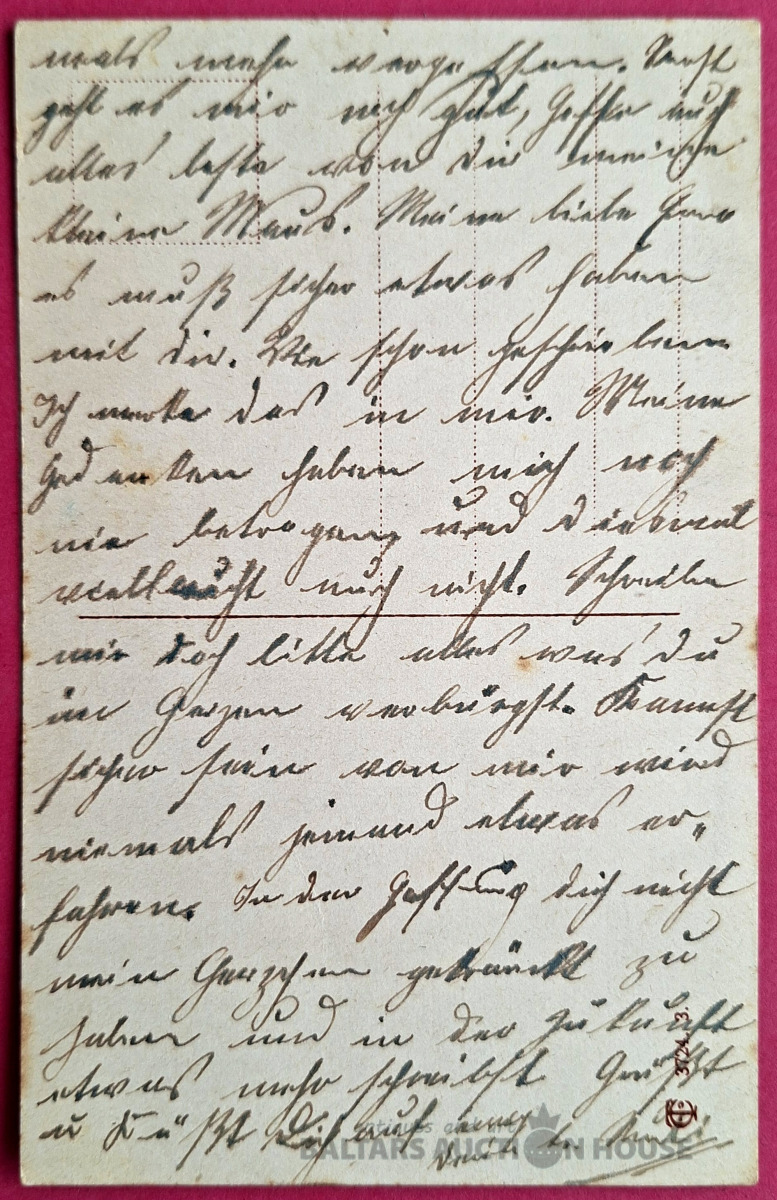 mals mehr vergessen. Sonst
geht es mir noch gut, hoffe auch
alles beste von dir meine
kleine Maus. Meine liebe
es muß sicher etwas haben
mit dir. Wie schon geschrieben
Ich merke das in mir. Meine
Gedanken haben mich noch
nie betrogen und diesmal
vielleicht auch nicht. Schreibe
mir doch bitte alles was du
im Herzen verbürgst. Kannst
sicher sein von mir wird
niemals jemand etwas er„
fahren. In der Hoffnung dich nicht
mein Herzchen gekränkt zu
haben und in der Zukunft
etwas mehr schreibst. Grüßt
u Küßt Dich auf ewig
dein
3724. 3.
BALTARS AUCTION HOUSE